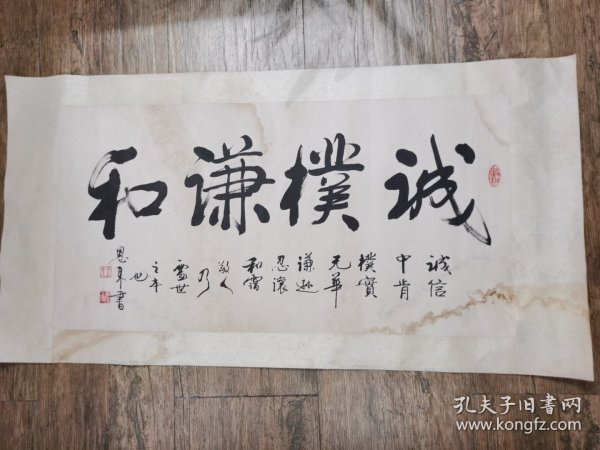 誠樸謙和
誠信
中肯
樸實
无華
謙遜
忍讓
和靄
敬人
乃
處世
之本
也
恩來書
孔夫子旧书网
www.kongfz.com